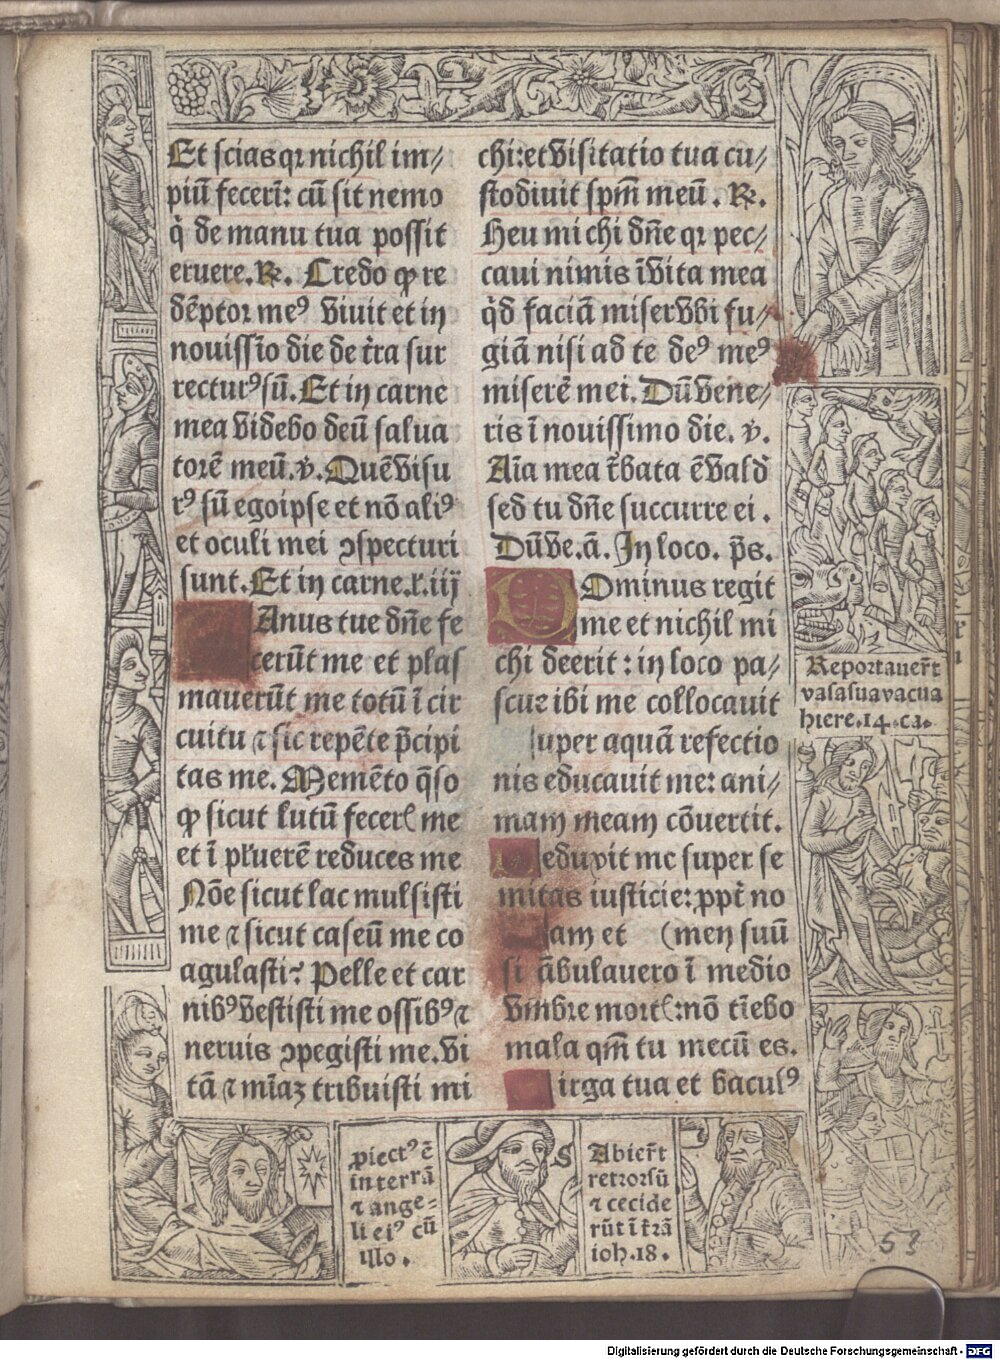 Et scias qꝛ nichil im⸗
piū fecerī: cū sit nemo
q̇ de manu tua possit
eruere. ℞. Credo ꝙ re
dēptor meꝰ viuit et in
nouissīo die de t̄ra sur
recturꝰ sū. Et in carne
mea videbo deū salua
torē meū. ℣. Quē visu
rꝰ sū ego ipse et nō aliꝰ
et oculi mei ↄspecturi
sunt. Et in carne. l. iij
Anus tue dn̄e fe
cerūt me et plas
mauerūt me totū ī cir
cuitu ⁊ sic repēte p̄cipi
tas me. Memēto q̄so
ꝙ sicut lutū fecerꝭ me
et ī pluerē reduces me
Nōe sicut lac mulsisti
me ⁊ sicut caseū me co
agulasti? Pelle et car
nibꝰ vestisti me ossibꝰ ⁊
neruis ↄpegisti me. Vi
tā ⁊ mīaꝫ tribuisti mi
chi: et visitatio tua cu⸗
stodiuit spm̄ meū. ℞.
Heu michi dn̄e qꝛ pec⸗
caui nimis ī vita mea
q̇d faciā miser vbi fu⸗
giā nisi ad te deꝰ meꝰ
miserē mei. Dū vene⸗
ris ī nouissimo die. ℣.
Aīa mea t̄bata ē vald
sed tu dn̄e succurre ei.
Dū ve. ā. In loco. p̄s.
DOminus regit
me et nichil mi
chi deerit: in loco pa⸗
scue ibi me collocauit
super aquā refectio
nis educauit me: ani⸗
mam meam cōuertit.
Deduxit me super se
mitas iusticie: ꝓpt̄ no
am et (men suū
si ābulauero ī medio
vmbre mortꝭ: nō tīebo
mala qm̄ tu mecū es.
irga tua et baculꝰ
Reportauer̄t
vasa sua vacua
hiere. 14. ca.
ꝓiectꝰ ē
in terrā
⁊ ange⸗
li eiꝰ cū
illo.
Abier̄t
retrorsū
⁊ cecide
rūt ī t̄rā
ioh. 18.
53
Digitalisierung gefördert durch die Deutsche Forschungsgemeinschaft - DFG